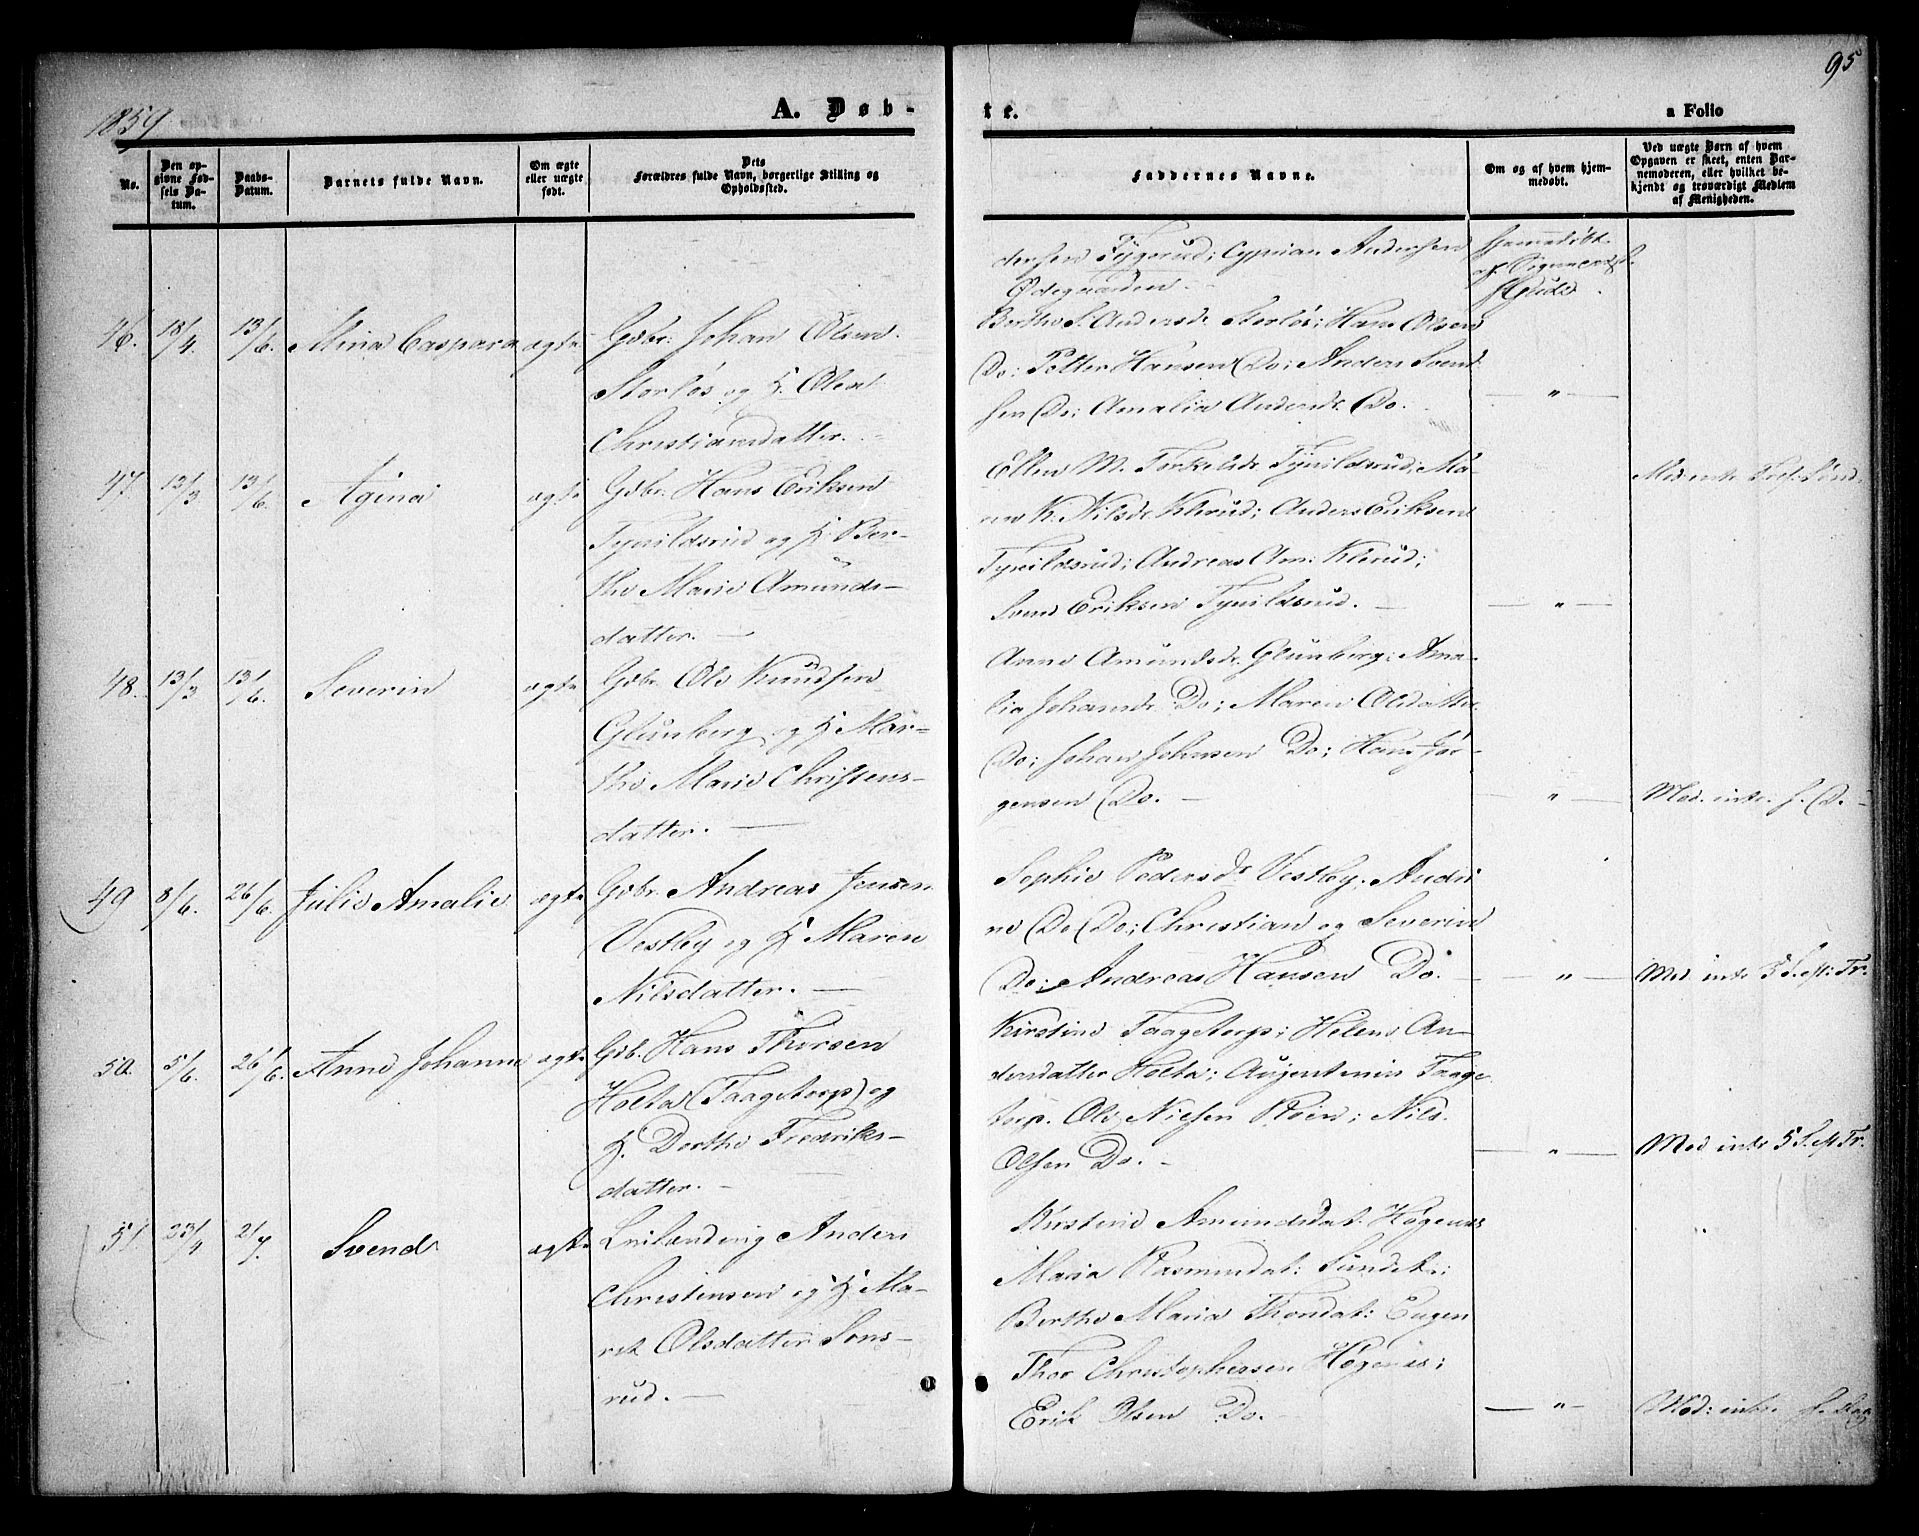 95
1859
A. Døb-
te.
a Folio
No.
Den op-
givne Fød-
sels Da-
tum.
Daabs-
Datum.
Barnets fulde Navn.
Om ægte
eller uægte
født.
Dets
Forældres fulde Navn, borgerlige Stilling og
Opholdssted.
Faddernes Navne.
Om og af hvem hjem-
medøbt.
Ved uægte Børn af hvem
Opgaven er skeet, enten Bar-
nemoderen, eller hvilket be-
kjendt og troværdigt Medlem
af Menigheden.
dersen Cyprian Andersen
Ødegaarden. -
Hjemmedøbt
af
46. 18/4. 13/6. Mina Caspara ægte
Gdbr. Johan Olsen
Storløs og K. Olea
Christiansdatter. -
Berthe S. Andersdr Storløs; Hans Olsen
Do; Petter Hansen Do; Anders Svend-
sen Do; Amalia Andersdr Do.
— " —
47. 13/3 13/6. Agina ægte
Gdbr. Hans Eriksen
Tyrildsrud og K. Ber-
the Marie Amunds-
datter. —
Ellen M. Torkelsdr Tyrildsrud; Ma-
ren K. Nilsdr Klerud; Anders Eriksen
Tyrildsrud; Andreas Am. Klerud;
Svend Eriksen Tyrildsrud. —
— " —
48. 13/3 13/6. Severin ægte
Gdbr. Ole Knudsen
Glunberg og K. Mar-
the Marie Christens-
datter. —
Anne Amundsdr. Glunberg; Ama-
lia Johansdr Do; Maren Olsdatter
Do; Johan Johnsen Do; Hans Jør-
gensen Do. —
— " —
49 8/6. 26/6. Julie Amalie ægte
Gdbr. Andreas Jensen
Vestby og K. Maren
Nilsdatter. —
Sophie Pedersdr Vestby. Andri-
ne Do Do; Christian og Severin
Do; Andreas Hansen Do. —
— " —
Mod. intr. 5 S. eft. Tr.
50. 5/6. 26/6. Anne Johanne ægte
Gdb. Hans Thorsen
Holta (Taagetorp) og
K. Dorthe Fredriks-
datter. —
Kirstine Taagetorp; Helene An-
dersdatter Holta; Augentinius Taage-
torp. Ole Nielsen Røen; Nils
Olsen Do. —
— " —
Mod intr 5 S. eft Tr.
51. 23/4 2/7. Svend ægte
Anders
Christensen og K Ma-
ret Olsdatter Sons-
rud. —
Kirstine Amundsdat: Høgenæs
Maria Rasmusdat:
Berthe Maria Thorsdat: Eugen
Thor Christophersen Høgenæs;
Erik Olsen Do. —
— " —
Mod: intr.